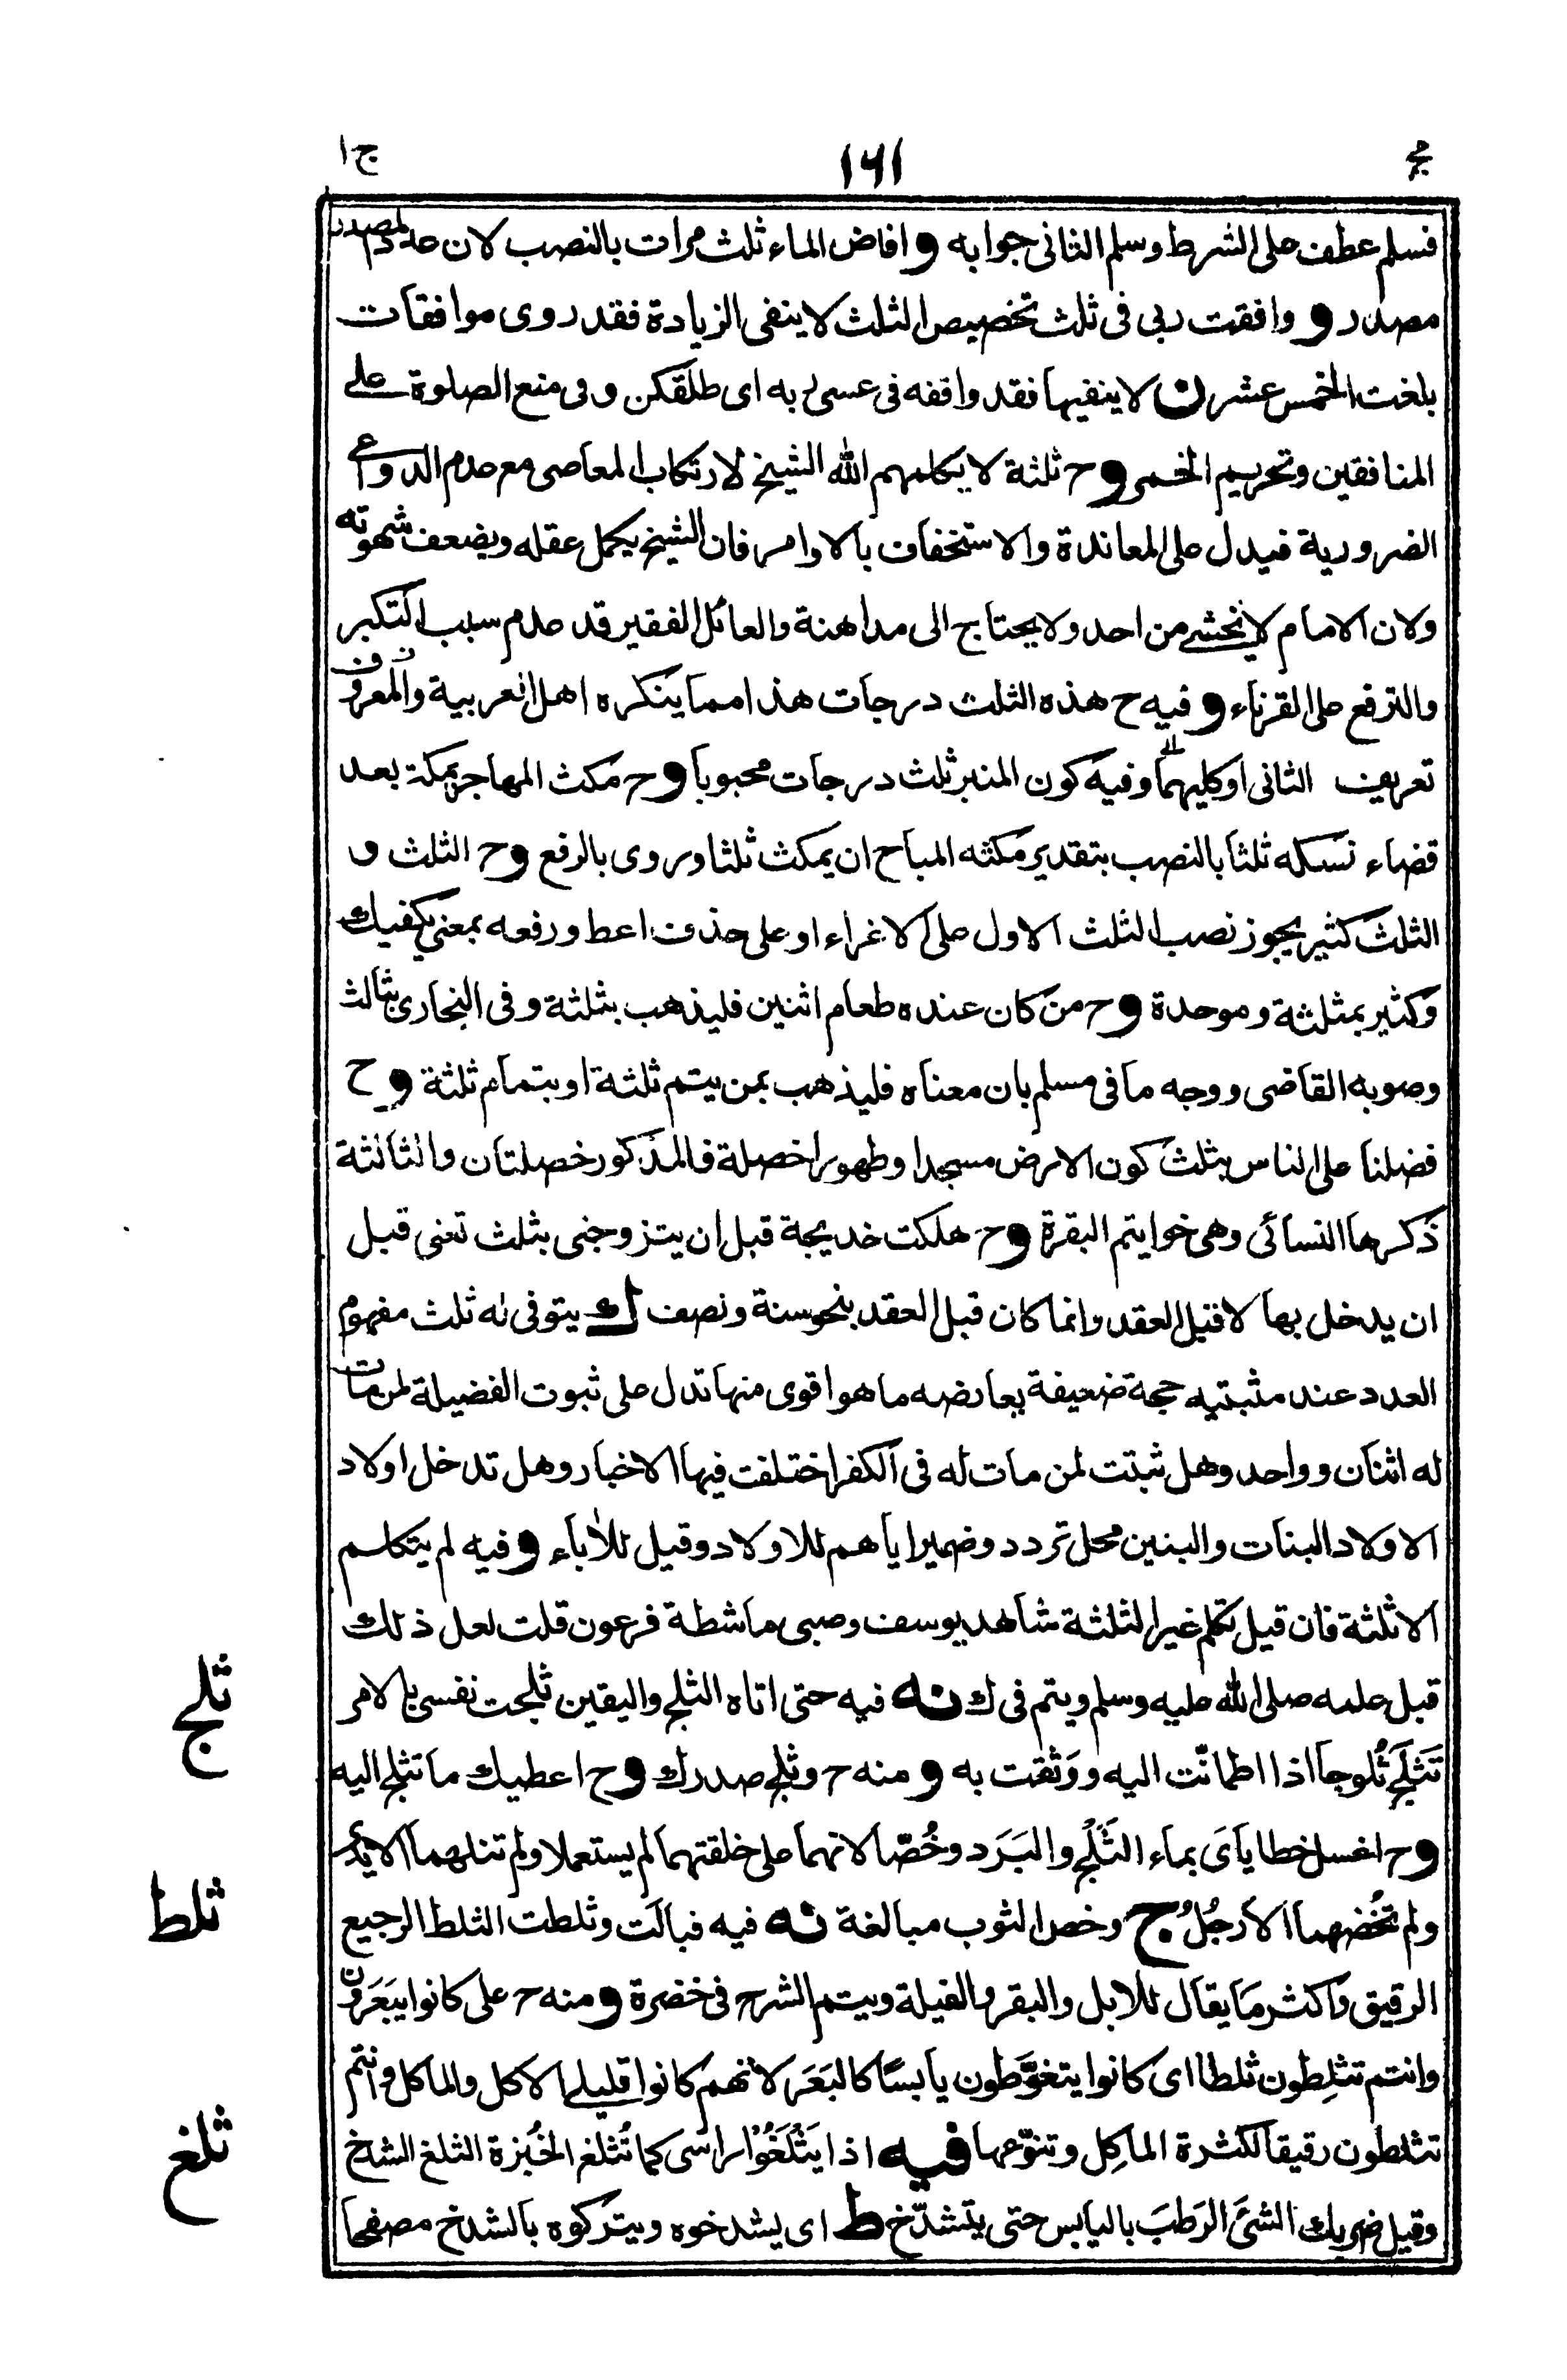 مج ١٦١ ج ١
فسلم عطف على الشرط وسلم الثانى جوابه و افاض الماء ثلث مرات بالنصب لان عدد المصدر
مصدر و وافقت ربى فى ثلث تخصيص الثلث لا ينفى الزيادة فقد روى موافقات
بلغت الخمس عشر ن لا ينفيها فقد وافقه فى عسى ربه اى طلقكن وفى منع الصلوة على
المنافقين وتحريم الخمر و ح ثلثة لا يكلمهم الله الشيخ لارتكاب المعاصى مع عدم الدواعى
الضرورية فيدل على المعاندة والاستخفاف بالاوامر فان الشيخ يكمل عقله ويضعف شهوته
ولان الامام لا يخشى من احد ولا يحتاج الى مداهنة والعائل الفقير قد عدم سبب التكبر
والترفع على القرناء و فيه ح هذه الثلث درجات هذا مما ينكره اهل العربية والمعروف
تعريف الثانى او كليهما وفيه كون المنبر ثلث درجات محبوبا و ح مكث المهاجر بمكة بعد
قضاء نسكه ثلثا بالنصب بتقدير مكثه المباح ان يمكث ثلثا وروى بالرفع و ح الثلث و
الثلث كثير يجوز نصب الثلث الاول على الاغراء او على حذف اعط ورفعه بمعنى يكفيك
وكثير بمثلثة وموحدة و ح من كان عنده طعام اثنين فليذهب بثلثة وفى البخارى بثالث
وصوبه القاضى ووجه ما فى مسلم بان معناه فليذهب بمن يتم ثلثة او بتمام ثلثة و ح
فضلنا على الناس بثلث كون الارض مسجدا وطهورا خصلة فالمذكور خصلتان والثالثة
ذكرها النسائى وهى خواتيم البقرة و ح هلكت خديجة قبل ان يتزوجنى بثلث تعنى قبل
ان يدخل بها لا قبل العقد وانما كان قبل العقد بنحو سنة ونصف ك يتوفى له ثلث مفهوم
العدد عند مثبتيه حجة ضعيفة يعارضه ما هو اقوى منها تدل على ثبوت الفضيلة لمن مات
له اثنان وواحد وهل ثبتت لمن مات له فى الكفر اختلفت فيها الاخبار وهل تدخل اولاد
الاولاد البنات والبنين محل تردد وضمير اياهم للاولاد وقيل للاٰباء و فيه لم يتكلم
الا ثلثة فان قيل تكلم غير الثلثة شاهد يوسف وصبى ماشطة فرعون قلت لعل ذلك
قبل علمه صلى الله عليه وسلم ويتم فى ك نه فيه حتى اتاه الثلج واليقين ثلجت نفسى بالامر
تَثلَج ثُلوجا اذا اطمانّت اليه ووَثقت به و منه ح وثلج صدرك و ح اعطيك ما تثلج اليه
و ح اغسل خطاياىَ بماء الثَلْج والبَرَد وخُصّا لانهما على خلقتهما لم يستعملا ولم تنلهما الايدى
ولم تخُضهما الارجُلُ ج وخص الثوب مبالغة نه فيه فبالَت وثلطت الثلط الرجيع
الرقيق واكثر ما يقال للابل والبقر والفيلة ويتم الشرح فى خضرة و منه ح على كانوا يبَعَرون
وانتم تثلِطون ثلطا اى كانوا يتغوَّطون يابسًا كالبَعَر لانهم كانوا قليلى الاكل والماكل وانتم
تثلطون رقيقا لكثرة الماكِل وتنوّعها فيه اذا يَثْلَغُوْا راسى كما تُثلغ الخُبزة الثلغ الشدخ
وقيل ضربك الشئَ الرَطبَ باليابس حتى يتشدّخ ط اى يشدخوه ويتركوه بالشدخ مصفحا
ثلج
ثلط
ثلغ